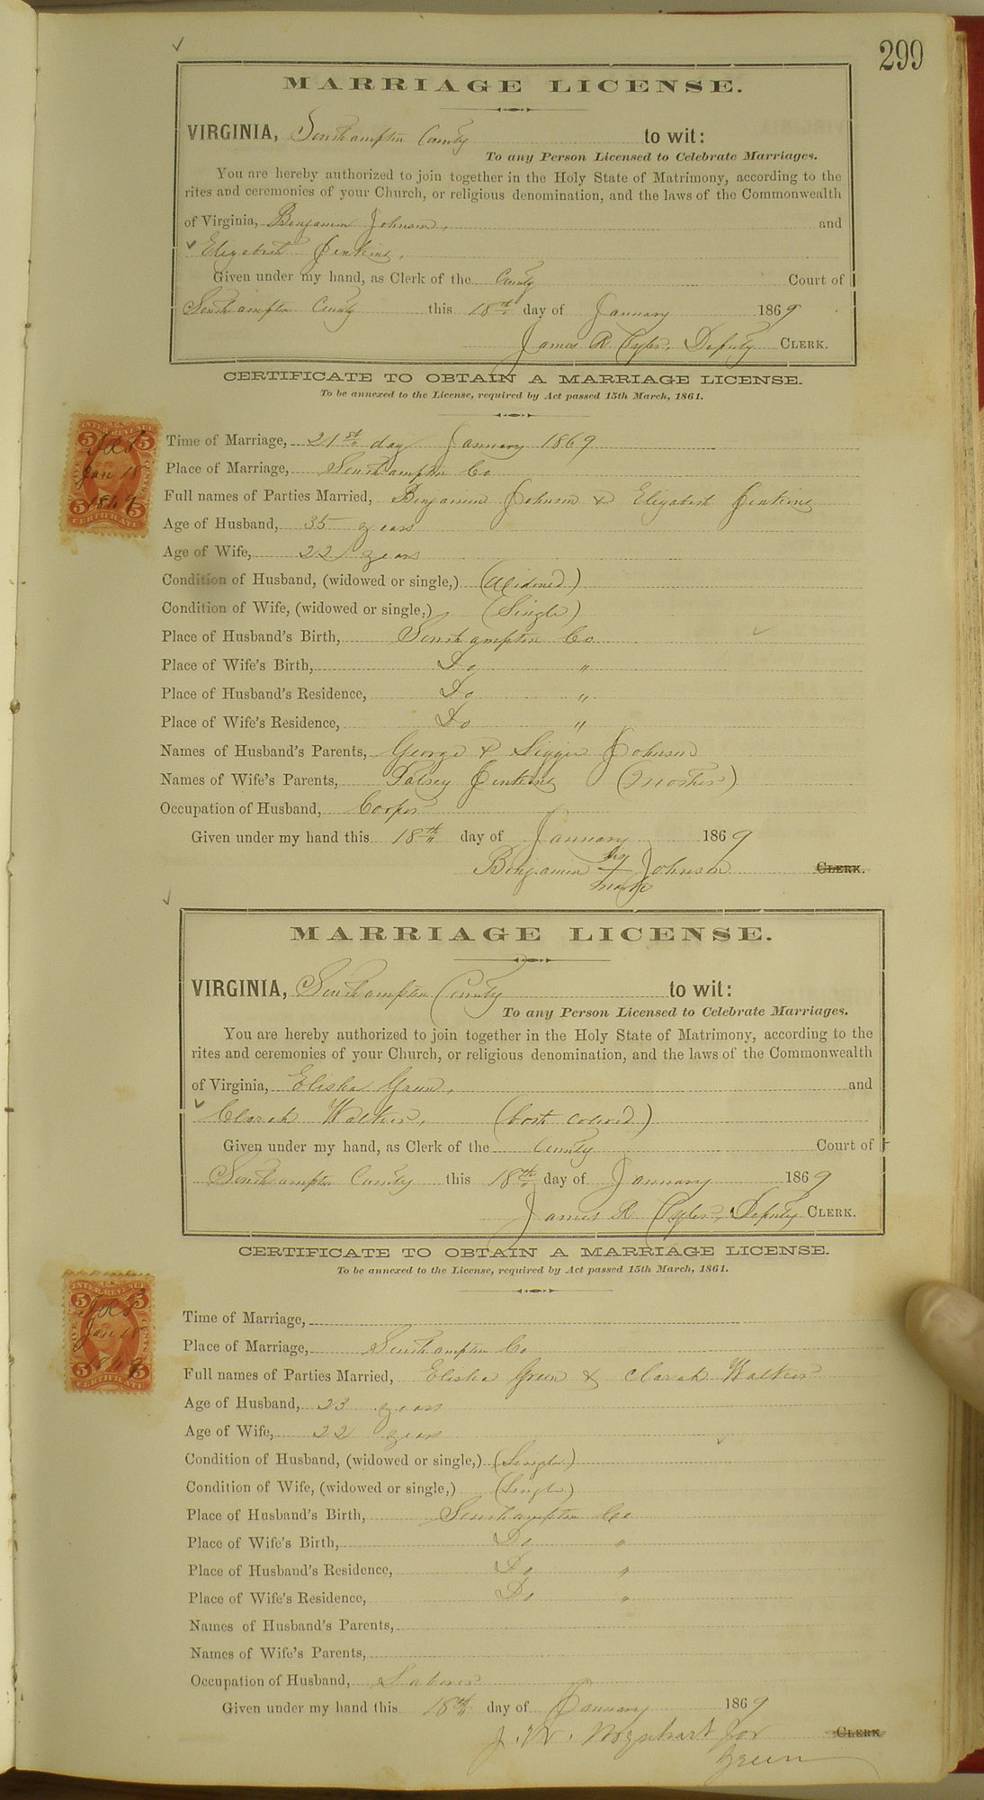 299
MARRIAGE LICENSE.
VIRGINIA, Southampton County to wit:
To any Person Licensed to Celebrate Marriages.
You are hereby authorized to join together in the Holy State of Matrimony, according to the
rites and ceremonies of your Church, or religious denomination, and the laws of the Commonwealth
of Virginia, Benjamin Johnson, and
Elizabeth Jenkins,
Given under my hand, as Clerk of the County Court of
Southampton County this 18th day of January 1869
James R. Tyler, Deputy CLERK.
CERTIFICATE TO OBTAIN A MARRIAGE LICENSE.
To be annexed to the License, required by Act passed 15th March, 1861.
Time of Marriage, 21st day January 1869
Place of Marriage, Southampton Co
Full names of Parties Married, Benjamin Johnson & Elizabeth Jenkins
Age of Husband, 35 years
Age of Wife, 22 years
Condition of Husband, (widowed or single,) (Widowed)
Condition of Wife, (widowed or single,) (Single)
Place of Husband's Birth, Southampton Co
Place of Wife's Birth, Do "
Place of Husband's Residence, Do "
Place of Wife's Residence, Do "
Names of Husband's Parents, George & Johnson
Names of Wife's Parents, Patsey Jenkins (Mother)
Occupation of Husband, Cooper
Given under my hand this 18th day of January 1869
Benjamin his Johnson CLERK.
mark
MARRIAGE LICENSE.
VIRGINIA, Southampton County to wit:
To any Person Licensed to Celebrate Marriages.
You are hereby authorized to join together in the Holy State of Matrimony, according to the
rites and ceremonies of your Church, or religious denomination, and the laws of the Commonwealth
of Virginia, Elisha Green, and
Clarah Walker, (both colored)
Given under my hand, as Clerk of the County Court of
Southampton County this 18th day of January 1869
James R. Tyler, Deputy CLERK.
CERTIFICATE TO OBTAIN A MARRIAGE LICENSE.
To be annexed to the License, required by Act passed 15th March, 1861.
Time of Marriage,
Place of Marriage, Southampton Co
Full names of Parties Married, Elisha Green & Clarah Walker
Age of Husband, 23 years
Age of Wife, 22 years
Condition of Husband, (widowed or single,) (Single)
Condition of Wife, (widowed or single,) (Single)
Place of Husband's Birth, Southampton Co
Place of Wife's Birth, Do "
Place of Husband's Residence, Do "
Place of Wife's Residence, Do "
Names of Husband's Parents,
Names of Wife's Parents,
Occupation of Husband, Laborer
Given under my hand this 18th day of January 1869
J. W. for CLERK
Green